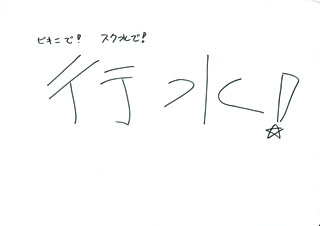 ビキニで! スク水で!
行水!☆